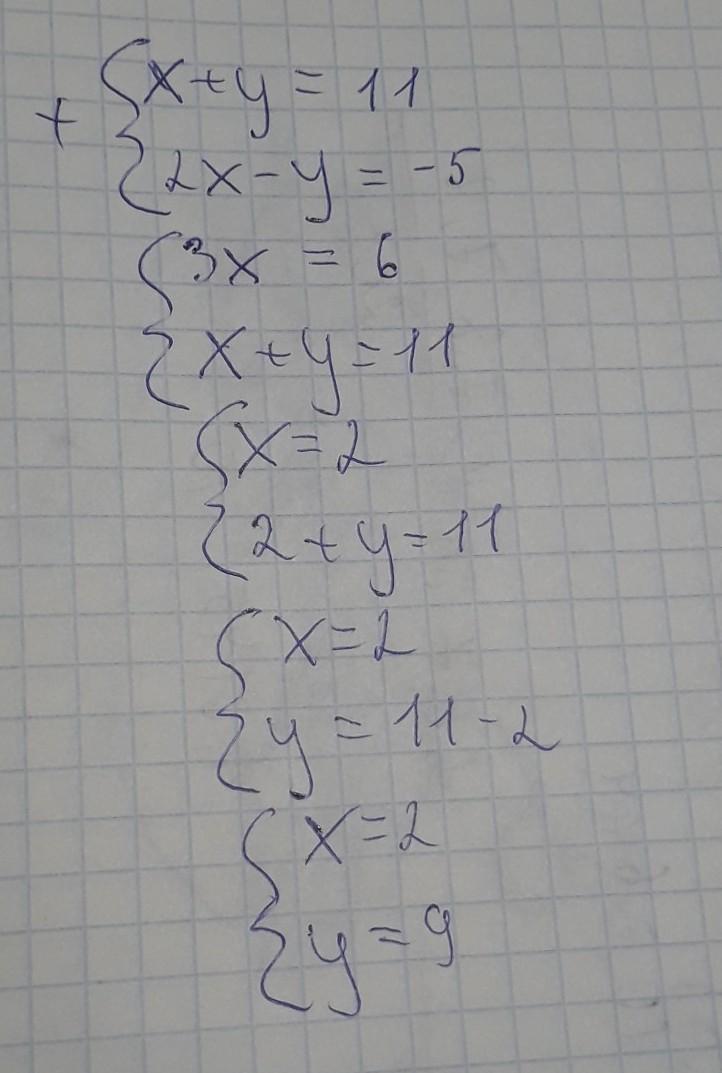 + { x+y = 11
2x-y = -5
{ 3x = 6
x+y=11
{ x=2
2+y=11
{ x=2
y = 11-2
{ x=2
y = 9